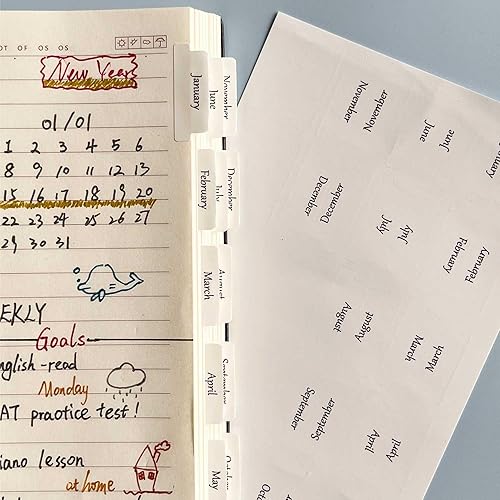 OT OF OS OS
New Year
01/01
1 2 3 4 5 6
8 9 10 11 12 13
15 16 17 18 19 20
22 23 24 25 26 27
29 30 31
EKLY
Goals
nglish-read
Monday
AT practice test!
iano lesson
at home
January
June
November
February
July
December
March
August
April
May
November
November
June
June
December
December
July
July
February
February
August
August
March
March
September
September
April
April